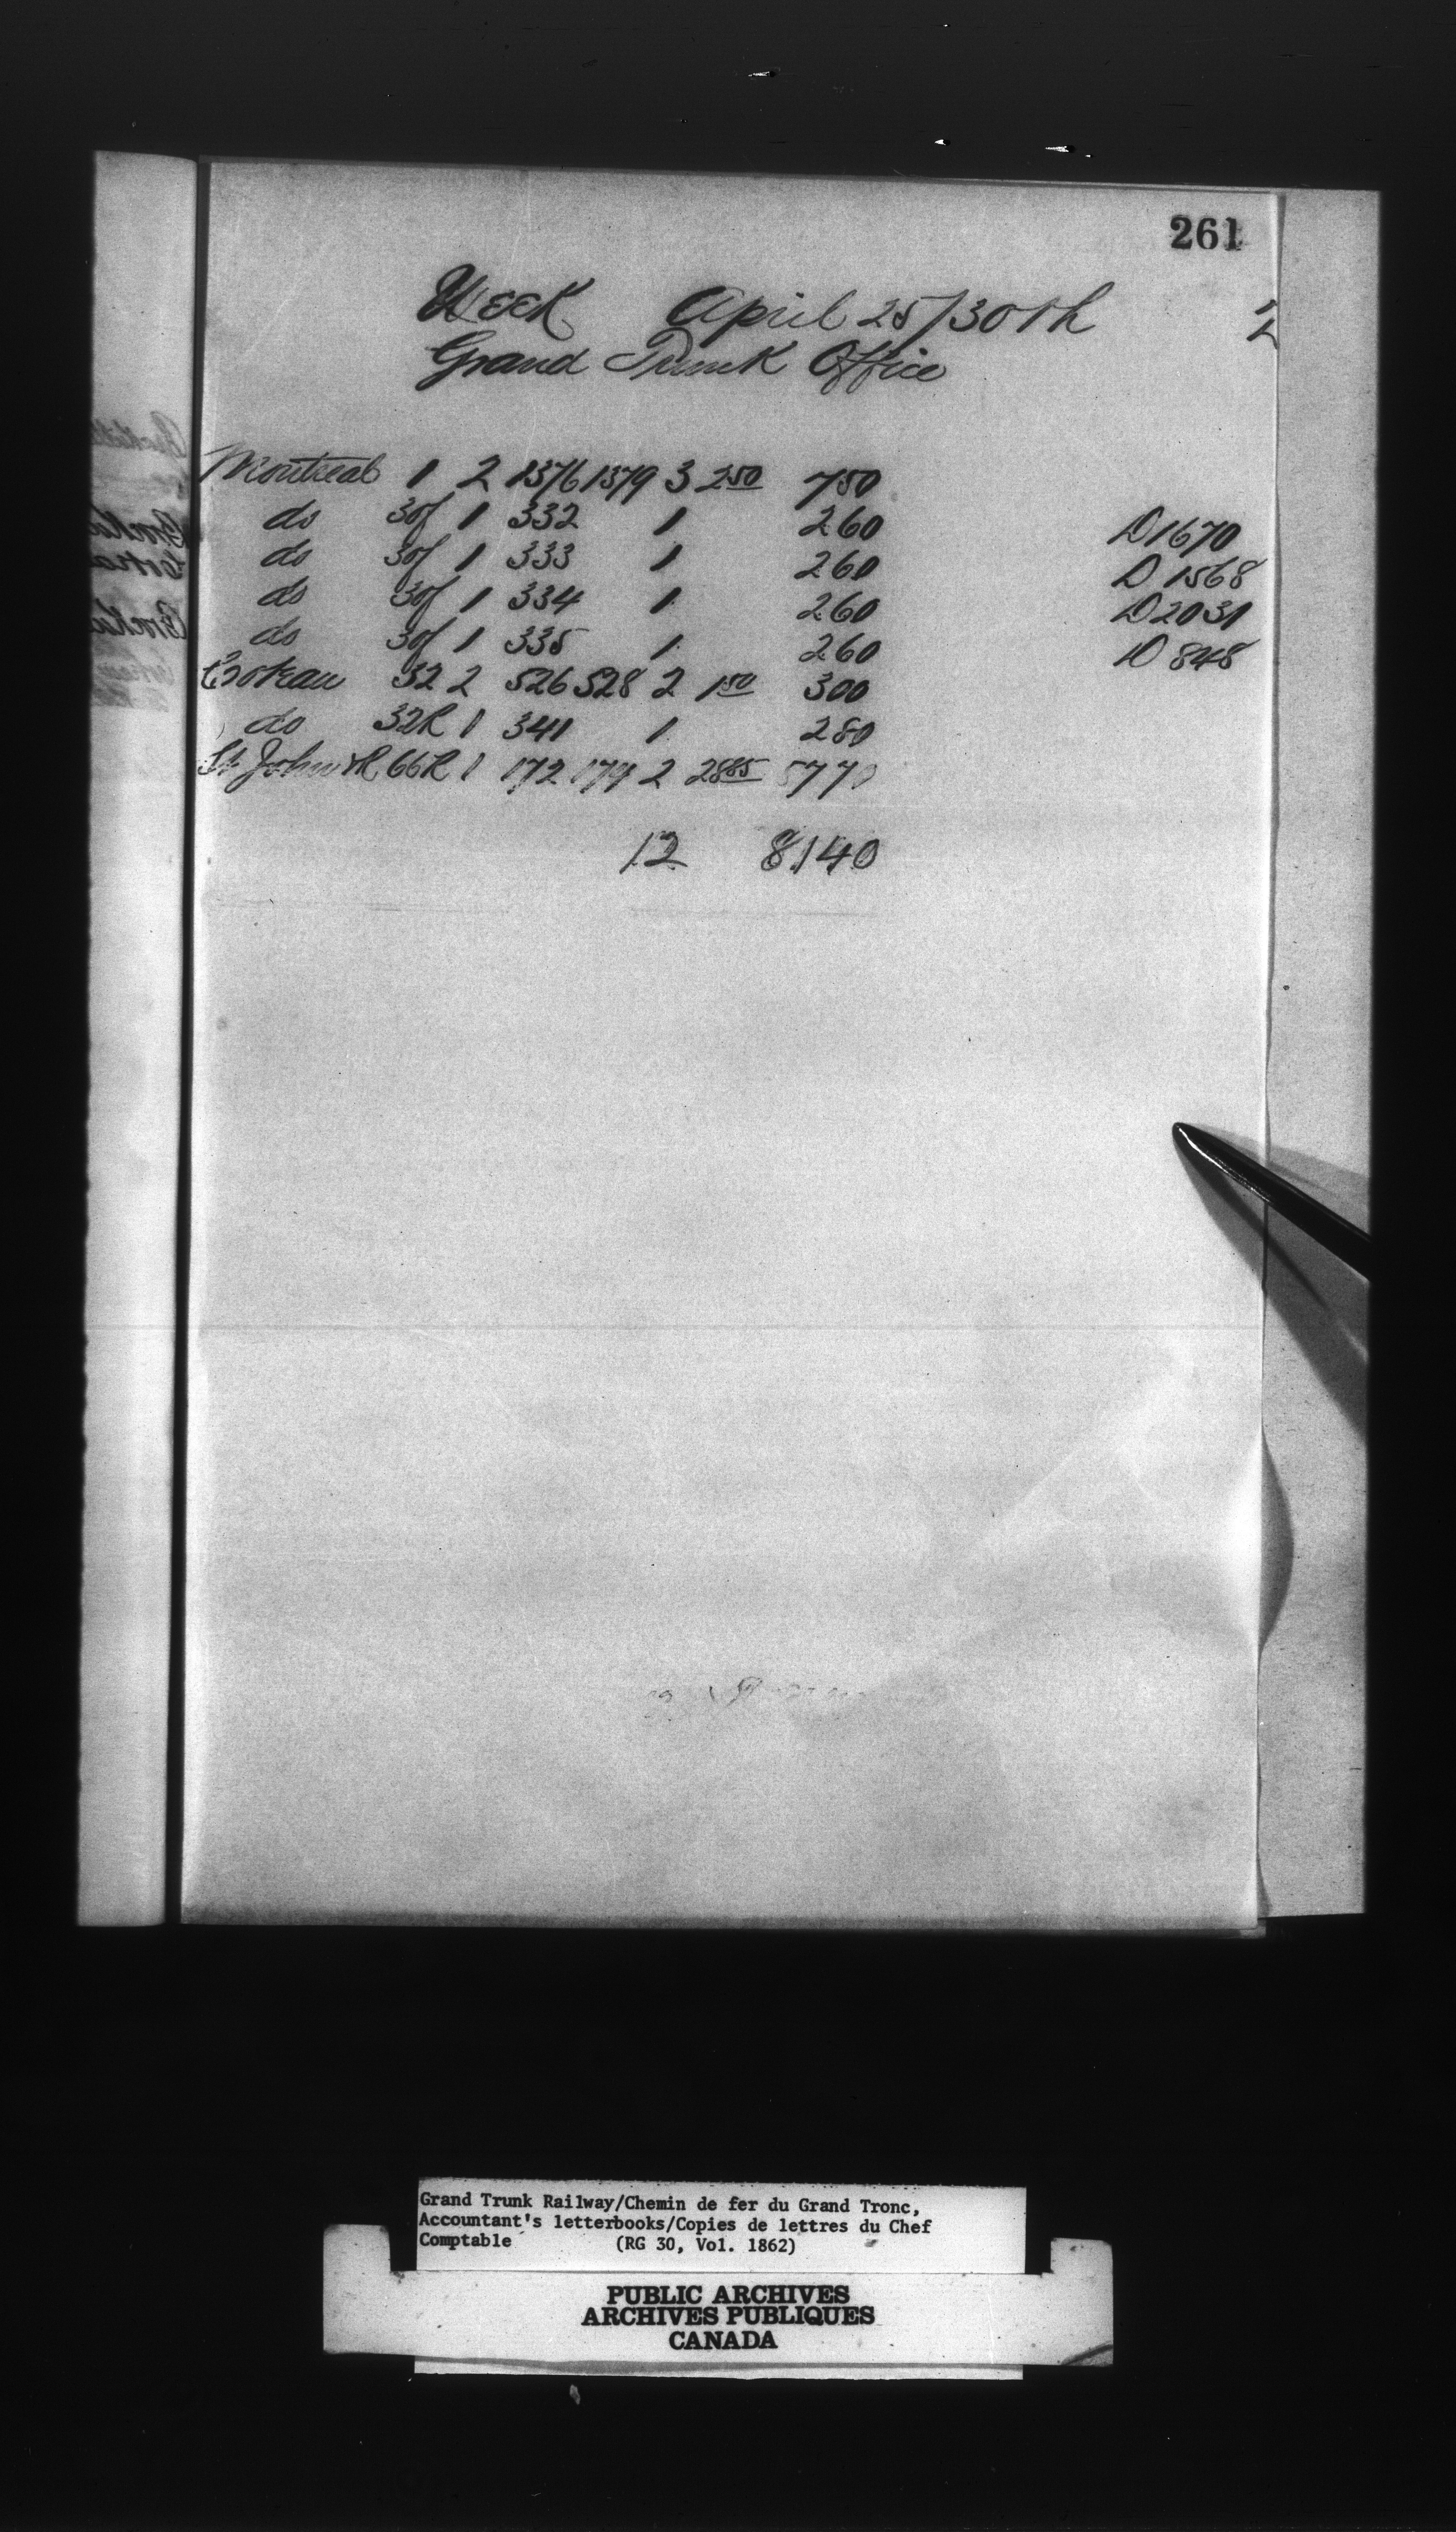 261
Week April 25/30th
Grand Trunk Office
Montreal 1 2 1376 1379 3 2 50 7 50
do 30f 1 332 1 2 60 D 1670
do 30f 1 333 1 2 60 D 1568
do 30f 1 334 1 2 60 D 2031
do 30f 1 335 1 2 60 D 848
Coteau 32 2 526 528 2 1 50 3 00
do 32R 1 341 1 2 80
St John 66R 1 172 174 2 28 85 57 70
12 81 40
Grand Trunk Railway/Chemin de fer du Grand Tronc,
Accountant's letterbooks/Copies de lettres du Chef
Comptable (RG 30, Vol. 1862)
PUBLIC ARCHIVES
ARCHIVES PUBLIQUES
CANADA